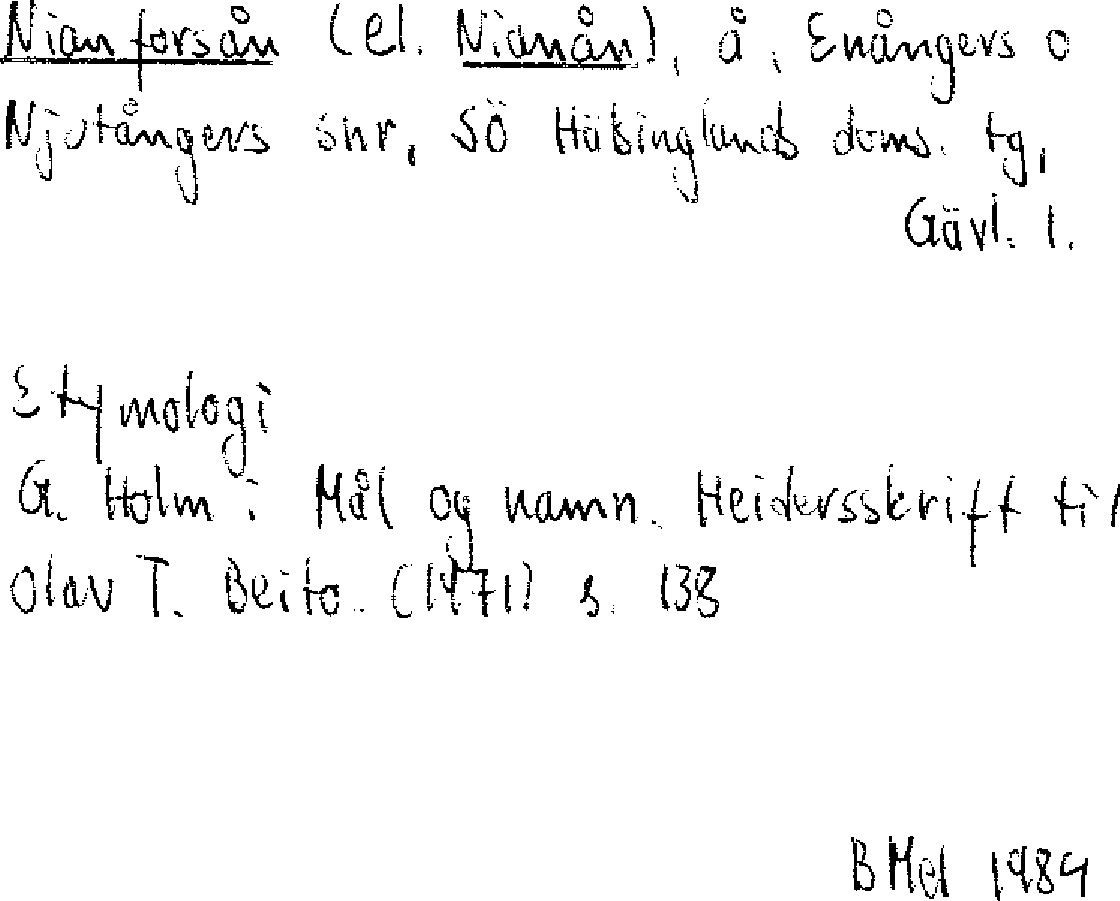 Nianforsån (el. Nianån), å, Enångers o
Njutångers snr, SÖ Hälsinglands doms. tg,
Gävl. l.
Etymologi
G. Holm i Mål og namn. Heidersskrift til
Olav T. Beito. (1971) s. 138
BMel 1984